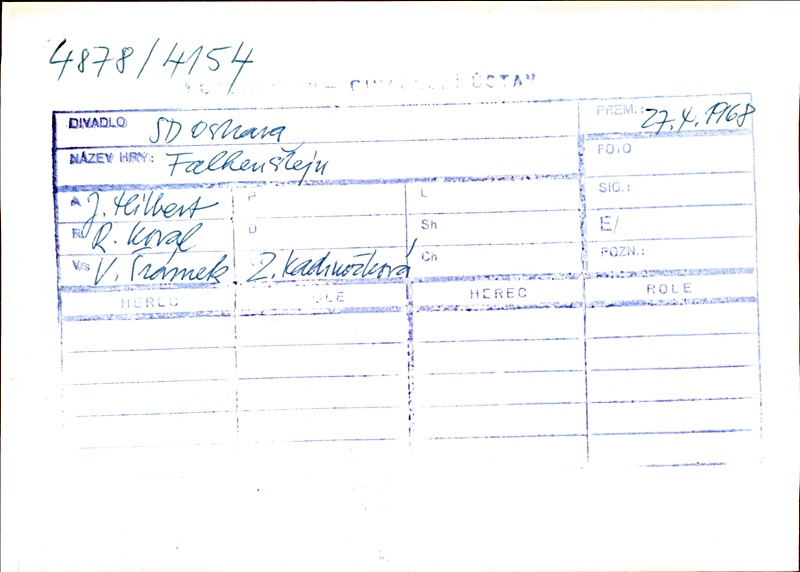 4878/4154
DIVADLO SD Ostrava PREM.: 27.4.1968
NÁZEV HRY: Falkenštejn FOTO
A J. Hilbert P L SIG.:
R R. Koval D Sh E/
V/s V. Šrámek Z. Kadrnožková Ch POZN.:
HEREC ROLE HEREC ROLE